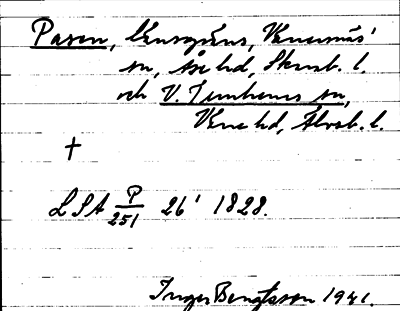 Paren, Eursgårns, Venersnäs'
sn, Åse hd, Skarab. l.
och V. Tunhems sn,
Väne hd, Älvsb. l.
†
LSA P/251 26' 1828.
Inger Bengtsson 1941.